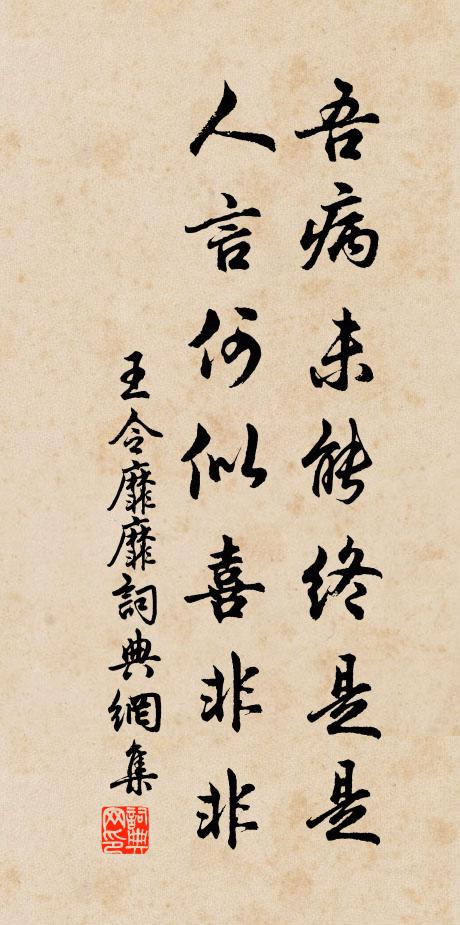 吾病未能終是是
人言何似喜非非
王令靡靡詞典網集
詞典网印